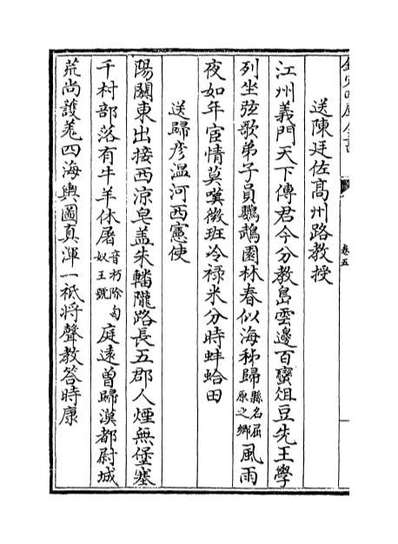 欽定四庫全書
卷五
送陳廷佐高州路教授
江州義門天下傳君今分教島雲邊百蠻俎豆先王學
列坐弦歌弟子員鸚鵡園林春似海秭歸縣名屈原之鄉風雨
夜如年宦情莫嘆微班冷祿米分時蚌蛤田
送歸彥溫河西憲使
陽關東出接西涼皂蓋朱轓隴路長五郡人煙無堡塞
千村部落有牛羊休屠音朽除匈奴王號庭遠曽歸漢都尉城
荒尚護羌四海輿圖真渾一祇將聲教答時康